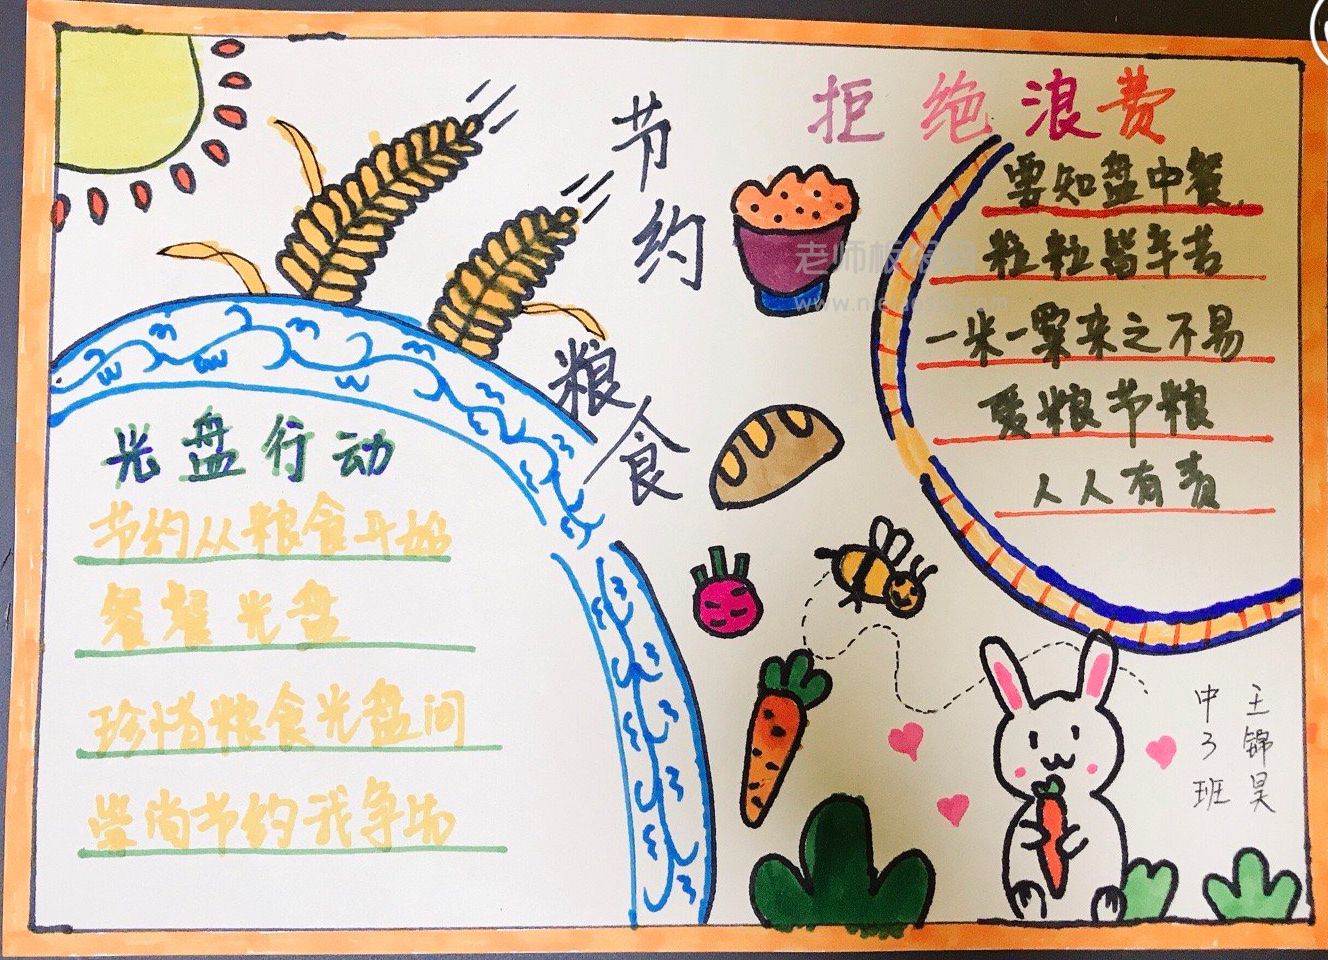 节约
粮食
拒绝浪费
要知盘中餐，
粒粒皆辛苦
一米一粟来之不易
爱粮节粮
人人有责
光盘行动
节约从粮食开始
餐餐光盘
珍惜粮食光盘间
崇尚节约我争先
王锦昊
中3班
老师板报网